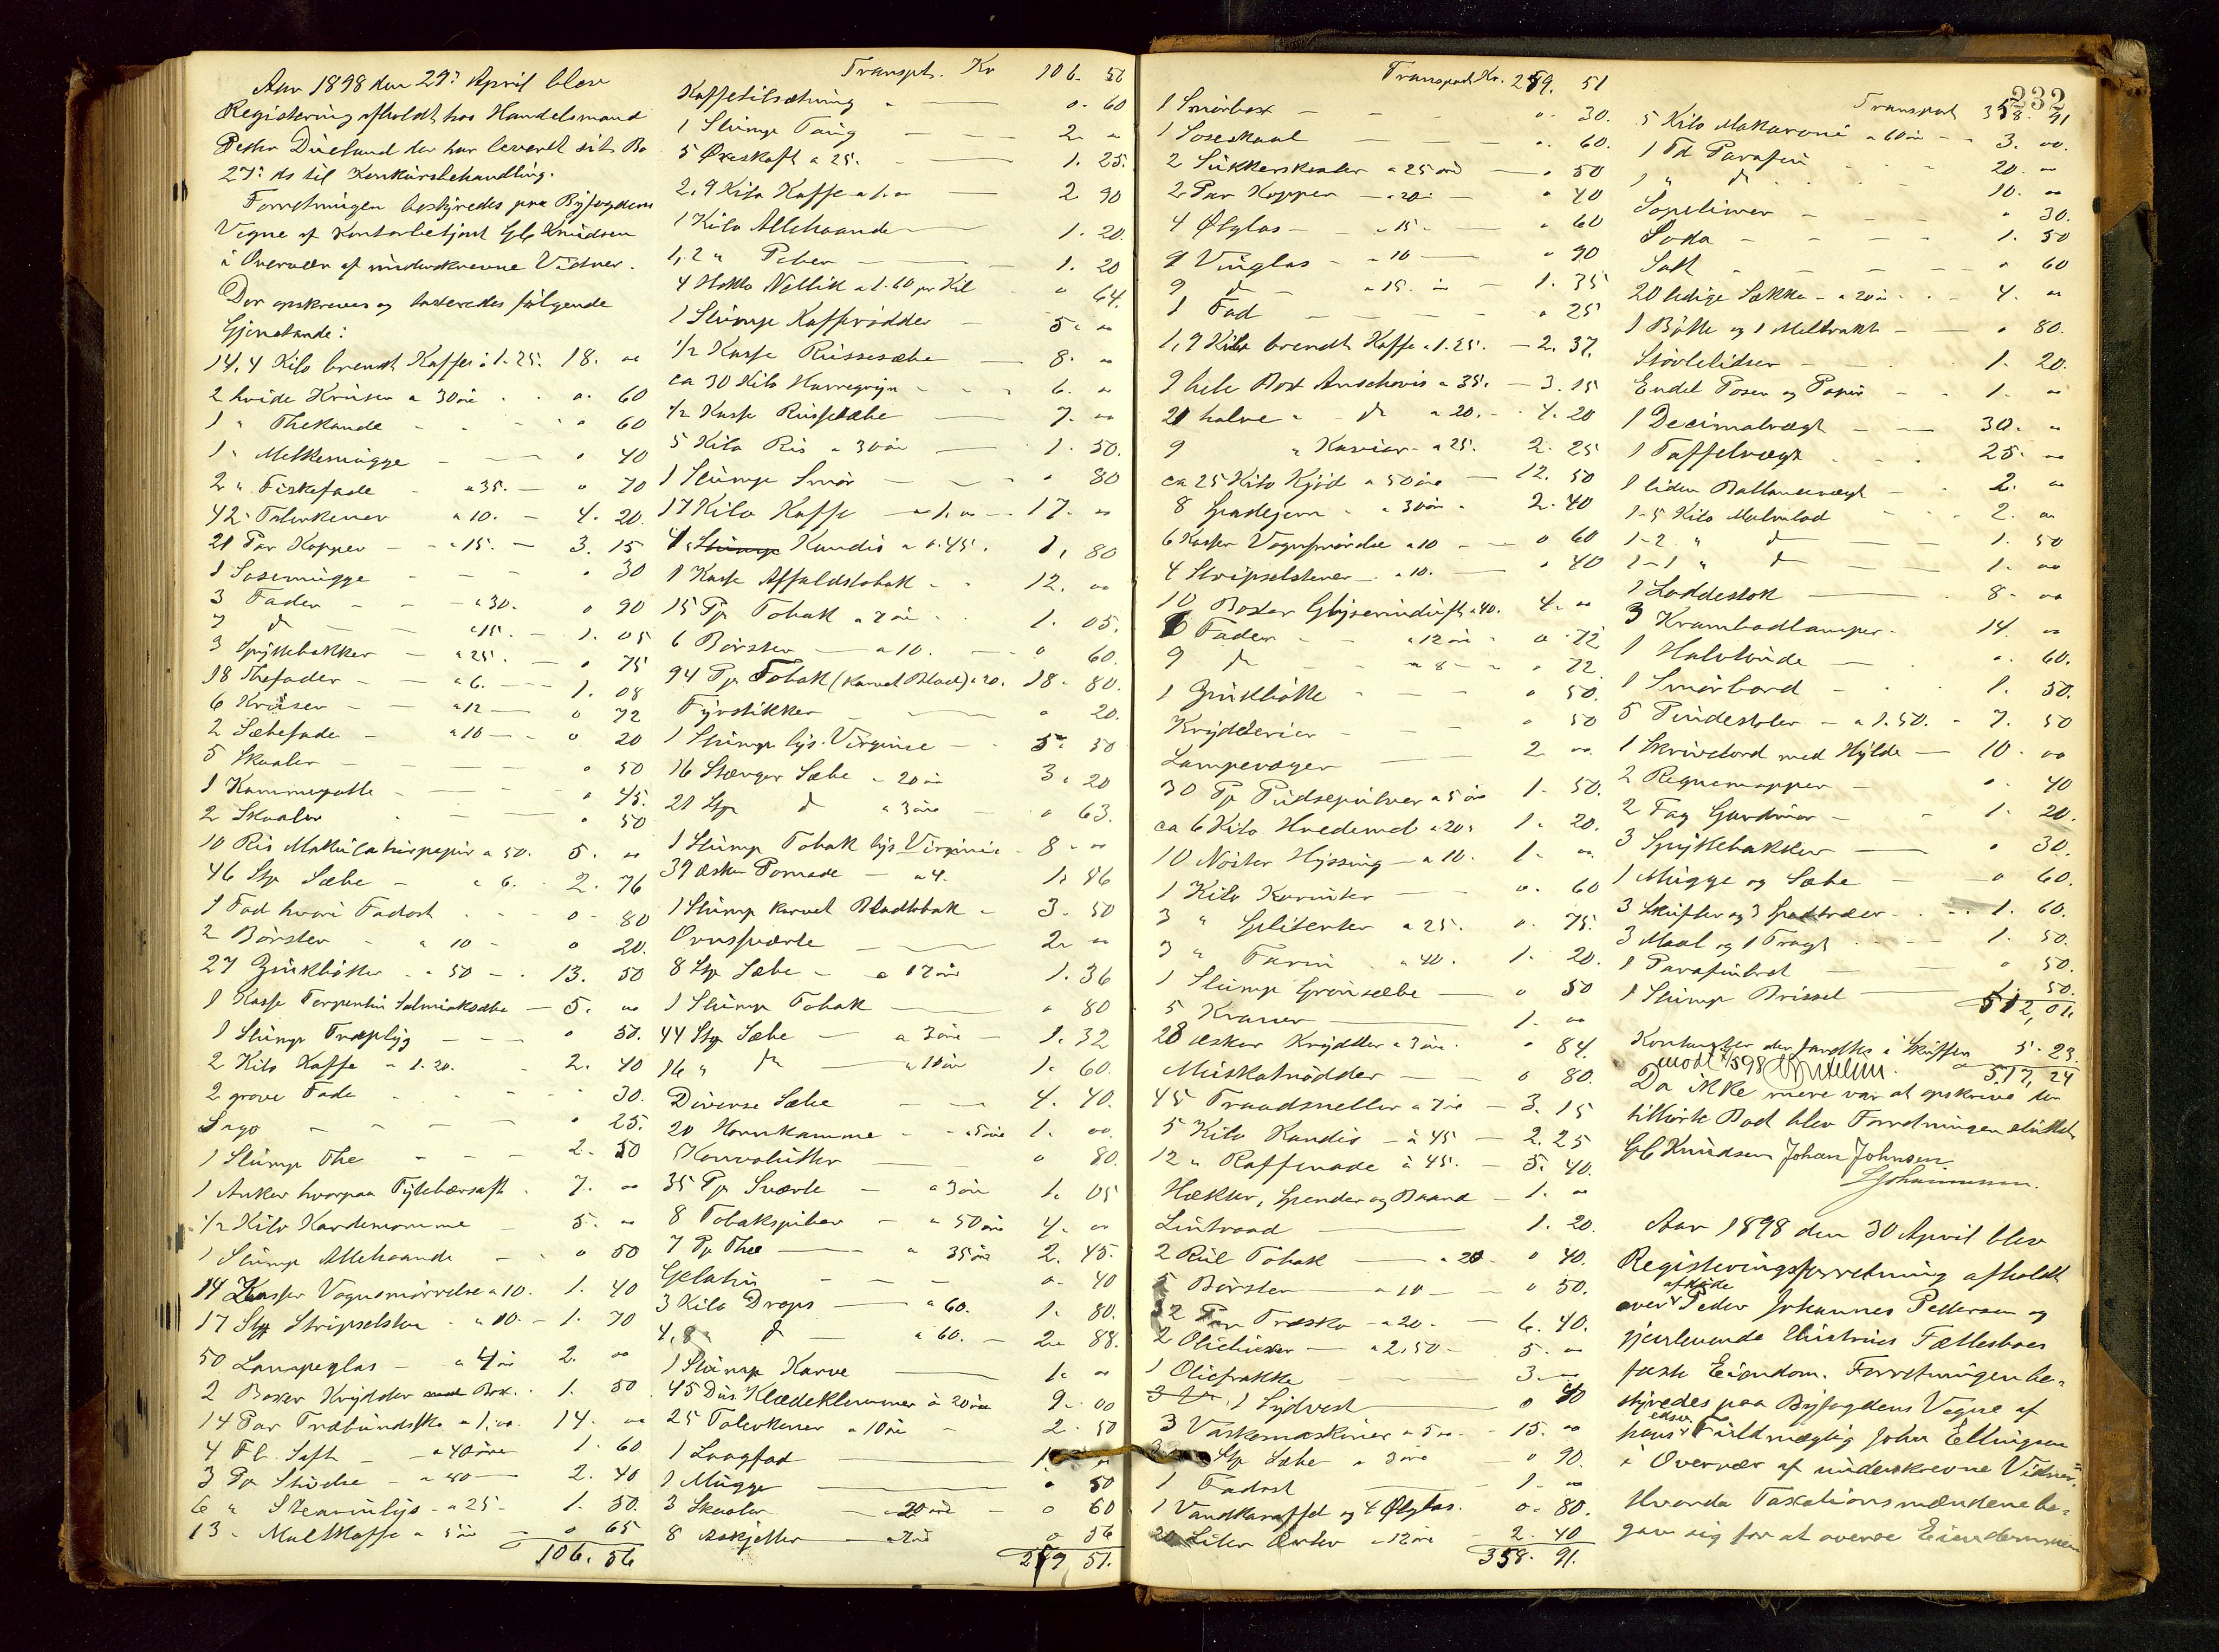 Aar 1898 den 29de April blev
Registering afholdt hos Handelsmand
Peder Duelund der har leveret sit Bo
27de ds til Konkursbehandling.
Forretningen bestyredes paa Byfogdens
Vegne af Kontorbetjent Knudsen
i Overvær af underskrevne Vidner.
Der opskreves og taxeredes følgende
Gjenstande:
14,4 Kilo brendt Kaffe a 1.25. 18. "
2 hvide Kruser a 30 øre " 60
1 " Thekande - " 60
1 " Melkemugge - " 40
2 " Fiskefade - a 35. - " 70
42 Talerkener a 10. - 4. 20
21 Par Kopper - a 15. - 3. 15
1 Sosemugge - " 30
3 Fader - a 30. " 90
7 do - a 15. - 1. 05
3 Spyttebakker - a 25. - " 75
18 Thefader - a 6. - 1. 08
6 Kruser - a 12 - " 72
2 Sæbefade - a 10 - " 20
5 Skaaler - " 50
1 Kammepotte - " 45.
2 Skaaler - " 50
10 Ris Makulaturpapir a 50. 5. "
46 Stp Sæbe - a 6. 2. 76
1 Fad hvori Fadost - " 80
2 Børster - a 10 - " 20.
27 Zinkbøtter - a 50 - 13. 50
1 Kasse Terpentin Salmiaksæbe - 5. "
1 Slump - " 50.
2 Kilo Kaffe a 1.20. - 2. 40
2 grove Fade - " 30.
Sago - " 25.
1 Slump The - 2. 50
1 Anker hvorpaa Tytebærsaft - 7. "
1/2 Kilo Kardemomme - 5. "
1 Slump Allehaande - " 50
14 Kasser Vognsmørrelse a 10. 1. 40
17 Stp Stripselstener a 10. - 1. 70
50 Lampeglas - a 4 øre 2. "
2 Boxer Krydder Box. 1. 50
14 Par Træbundsko a 1,00. 14. "
4 Fl. Saft - a 40 øre 1. 60
3 Pp Stivelse - a 80 - 2. 40
6 " Stearinlys - a 25 - 1. 50.
13 " Maltkaffe a 5 øre - " 65
106. 56
Transpt. Kr 106. 56
Kaffetilsætning - 0. 60
1 Slump Toug - 2. "
5 Øxeskaft a 25. - 1. 25.
2,9 Kilo Kaffe a 1." - 2. 90
1 Kilo Allehaande - 1. 20.
1,2 " Peber - 1. 20
4 Hekto Nellik a 1.60 pr Kil " 64.
1 Slump Kafferødder - 5. "
1/2 Kasse Russesæbe - 8. "
ca 30 Kilo Havregryn - 6. "
1/2 Kasse Russesæbe - 7. "
5 Kilo Ris a 30 øre - 1. 50.
1 Slump Smør - " 80
17 Kilo Kaffe - a 1." - 17. "
4 Slump Kandis a 0.45. 1. 80
1 Kasse Affaldstobak - 12. "
15 Pp Tobak a 7 øre - 1. 05.
6 Børster - a 10. - " 60.
94 Pp Tobak (karvet Blad) a 20. 18. 80.
Fyrstikker - " 20.
1 Slump lys. Virginie - 5. 50
16 Stænger Sæbe a 20 øre 3. 20
21 Stp do a 3 øre - " 63.
1 Slump Tobak lys Virginie - 8. "
39 Æsker Pomade - a 4. 1. 56
1 Slump karvet Bladtobak - 3. 50
Ovnsværte - 2. "
8 Stp Sæbe - a 17 øre 1. 36
1 Slump Tobak - " 80
44 Stp Sæbe - a 3 øre - 1. 32
16 " do - a 10 øre 1. 60.
Diverse Sæbe - 4. 40.
20 Hornkamme - a 5 øre 1. 00.
Konvolutter - " 80.
35 Pp Sværte - a 3 øre 1. 05
8 Tobakspiber - a 50 øre 4. "
7 Pp The - a 35 øre 2. 45.
Gelatin - " 40
3 Kilo Drops - a 60. 1. 80.
4,8 " do - a 60. - 2. 88.
1 Slump Karve - 1. "
45 Dus. Klædeklemmer a 20 øre 9. 00
25 Talerkener a 10 øre - 2. 50
1 Langfad - 1. "
1 Mugge - " 50
3 Skaaler - a 20 øre " 60
8 - a 7 øre " 56
259 51.
Transport Kr. 259. 51
1 Smørbox - " 30.
1 Soseskaal - " 60.
2 Sukkerskaaler a 25 øre - " 50
2 Par Kopper - a 20 - " 40
4 Ølglas - a 15 - " 60
9 Vinglas - a 10 - " 90
9 do - a 15. øre - 1. 35
1 Fad - " 25
1,9 Kilo brendt Kaffe a 1.25. - 2. 37.
9 hele Box Anschovis a 35. - 3. 15
21 halve " - do a 20. - 4. 20
9 " Kaviar - a 25. 2. 25
ca 25 Kilo Kjød a 50 øre - 12. 50
8 Spadejern - a 30 øre - 2. 40
6 Kasser Vognsmørelse a 10 - " 60
4 Stripselstener - a 10. - " 40
10 Boxer a 40. 4. "
6 Fader - a 12 øre - 0. 72
9 do - a 8 - " 72.
1 Zinkbøtte - " 50.
Krydderier - " 50
Lampevæger - 2. "
30 Pp Pudsepulver a 5 øre 1. 50.
ca 6 Kilo Hvedemel a 20. 1. 20.
10 Nøster Hyssing - a 10. 1. "
1 Kilo Korinter - 0. 60
3 " Spliterter a 25. 0. 75.
3 " Farin - a 40. 1. 20.
1 Slump Grønsæbe - " 50
5 Kraner - 1. "
28 Æsker Krydder a 3 øre. " 84.
Muskatnødder - " 80.
45 Traadsneller a 7 øre - 3. 15
5 Kilo Kandis - a 45 - 2. 25
12 " Raffinade a 45. - 5. 40.
Hækter, Spender og Baand - 1. "
Lintraad - 1. 20.
2 Rul Tobak - a 20 - " 40.
5 Børster - a 10 - " 50.
32 Par Træsko - a 20. - 6. 40.
2 - a 2.50 - 5. "
1 Oliefrakke - 3. "
1 Sydvest - " 40
3 Vaskemaskiner a 5 " - 15. "
Stp Sæbe a 3 øre " 90.
1 Fadost - 1. "
1 Vandkaraffel og 4 Ølglas. 0. 80.
20 Liter Erter a 12 øre - 2. 40
358. 91.
232
Transport 358. 91
5 Kilo Makaroni a 60 øre - 3. 00.
1 Fd Parafin - 20. "
1 " do - 10. "
Sopelimer - " 30.
Soda - 1. 50
Salt - " 60
20 ledige Sække - a 20 øre - 4. "
1 Bøtte og 1 Meltrakt - " 80.
Støvlelidser - 1. 20.
Endel Poser og Papir - 1. "
1 Decimalvægt - 30. "
1 Taffelvægt - 25. "
1 liden Ballancevægt - 2. "
1-5 Kilo - 2. "
1-2 " do - 1. 50
1-1 " do - 1. "
1 Loddestok - 8. "
3 Krambodlamper. 14. "
1 Halvtønde - " 60.
1 Smørbord - 1. 50.
5 Pindestoler - a 1.50. - 7. 50
1 Skrivebord med Hylde - 10. "
2 Regnemapper - " 40
2 Fag Gardiner - 1. 20.
3 Spyttebakker - " 30.
1 Mugge og Sæbe - " 60.
3 Skuffer og 3 - 1. 60.
3 Maal og 1 Tragt - 1. 50.
1 - " 50.
1 Slump Brissel - 1. 50.
512,01.
Kontanter der fandtes i Skuffen 5. 23.
517, 24
Da ikke mere var at opskrive den
tilhørte Bod blev Forretningen sluttet
Knudsen Johan Johnsen
Aar 1898 den 30 April blev
Registeringsforretning afholdt
over afdøde Peder Johannes Pettersen og
gjenlevende Enkes Fællesboes
faste Eiendom. Forretningen be-
styredes paa Byfogdens Vegne af
hans Fuldmægtig John Ellingsen
i Overvær af underskrevne Vidner.
Hvorda Taxationsmændene be-
gav sig for at overse Eiendommen